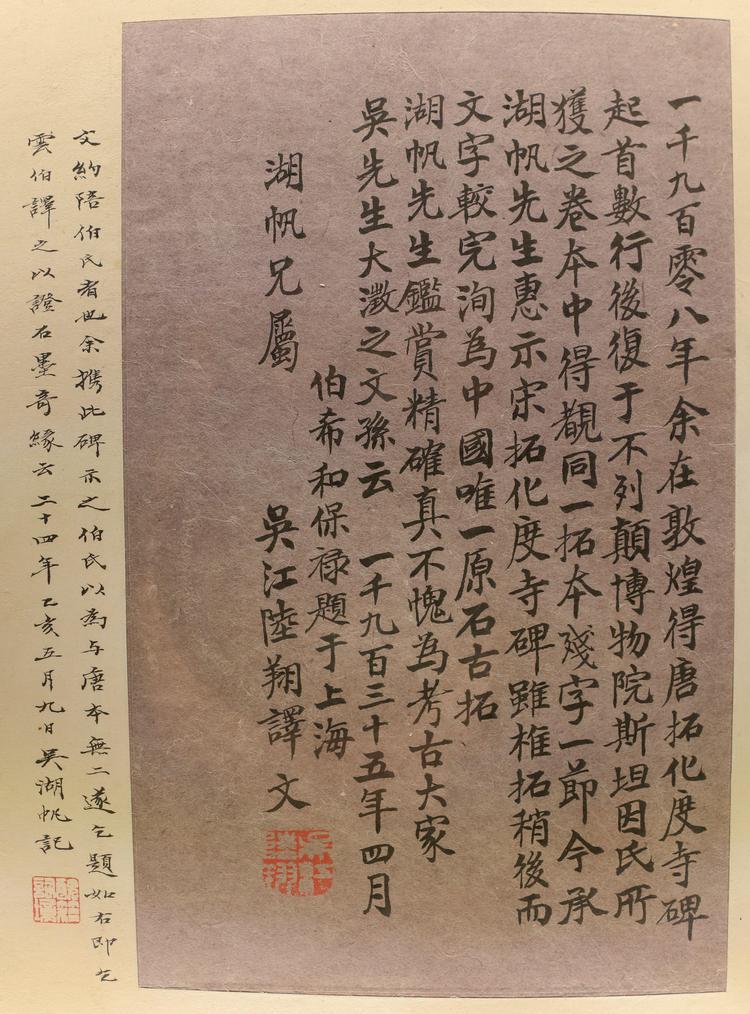 一千九百零八年余在敦煌得唐拓化度寺碑
起首數行後復于不列顛博物院斯坦因氏所
獲之卷本中得覩同一拓本殘字一節今承
湖帆先生惠示宋拓化度寺碑雖椎拓稍後而
文字較完洵為中國唯一原石古拓
湖帆先生鑑賞精確真不愧為考古大家
吳先生大澂之文孫云 一千九百三十五年四月
伯希和保祿題于上海
湖帆兄屬 吳江陸翔譯文
文約陪伯氏者也余攜此碑示之伯氏以為与唐本無二遂乞題如右即乞
雲伯譯之以證石墨奇緣云二十四年乙亥五月九日吳湖帆記